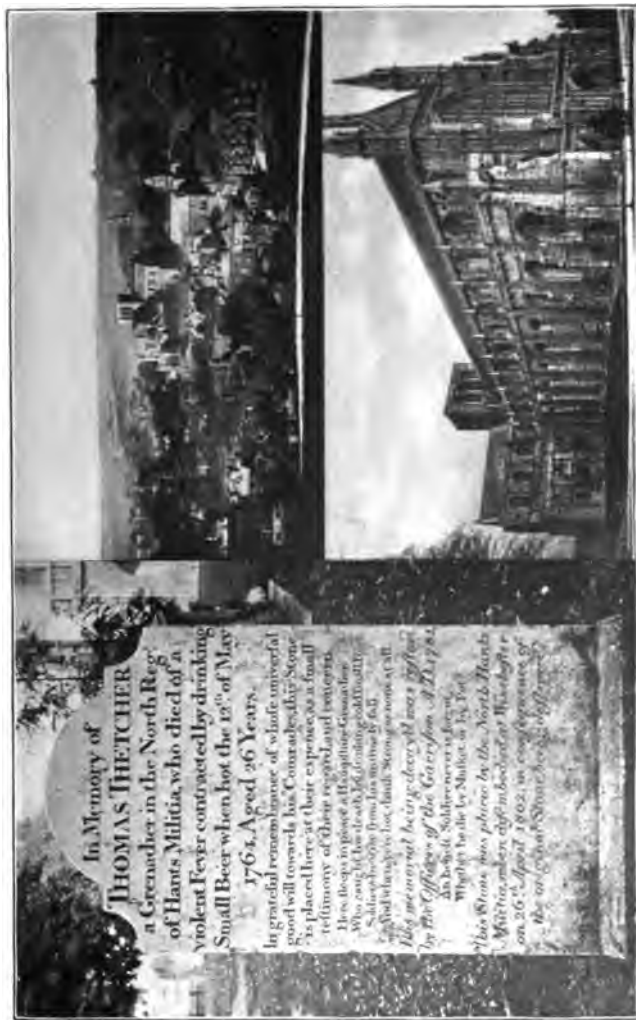 In Memory of
THOMAS THETCHER
a Grenadier in the North Reg.
of Hants Militia, who died of a
violent Fever contracted by drinking
Small Beer when hot the 12th of May
1764. Aged 26 Years.
In grateful remembrance of whose universal
good will towards his Comrades, this Stone
is placed here at their expence, as a small
testimony of their regard and concern.
Here sleeps in peace a Hampshire Grenadier,
Who caught his death by drinking cold small Beer,
Soldiers be wise from his untimely fall
And when ye're hot drink Strong or none at all.
This memorial being decay'd was restor'd
by the Officers of the Garrison A.D. 1781.
An honest Soldier never is forgot
Whether he die by Musket or by Pot.
This Stone was placed by the North Hants
Militia, when disembodied at Winchester
on 26th April 1802, in consequence of
the original Stone being destroyed.